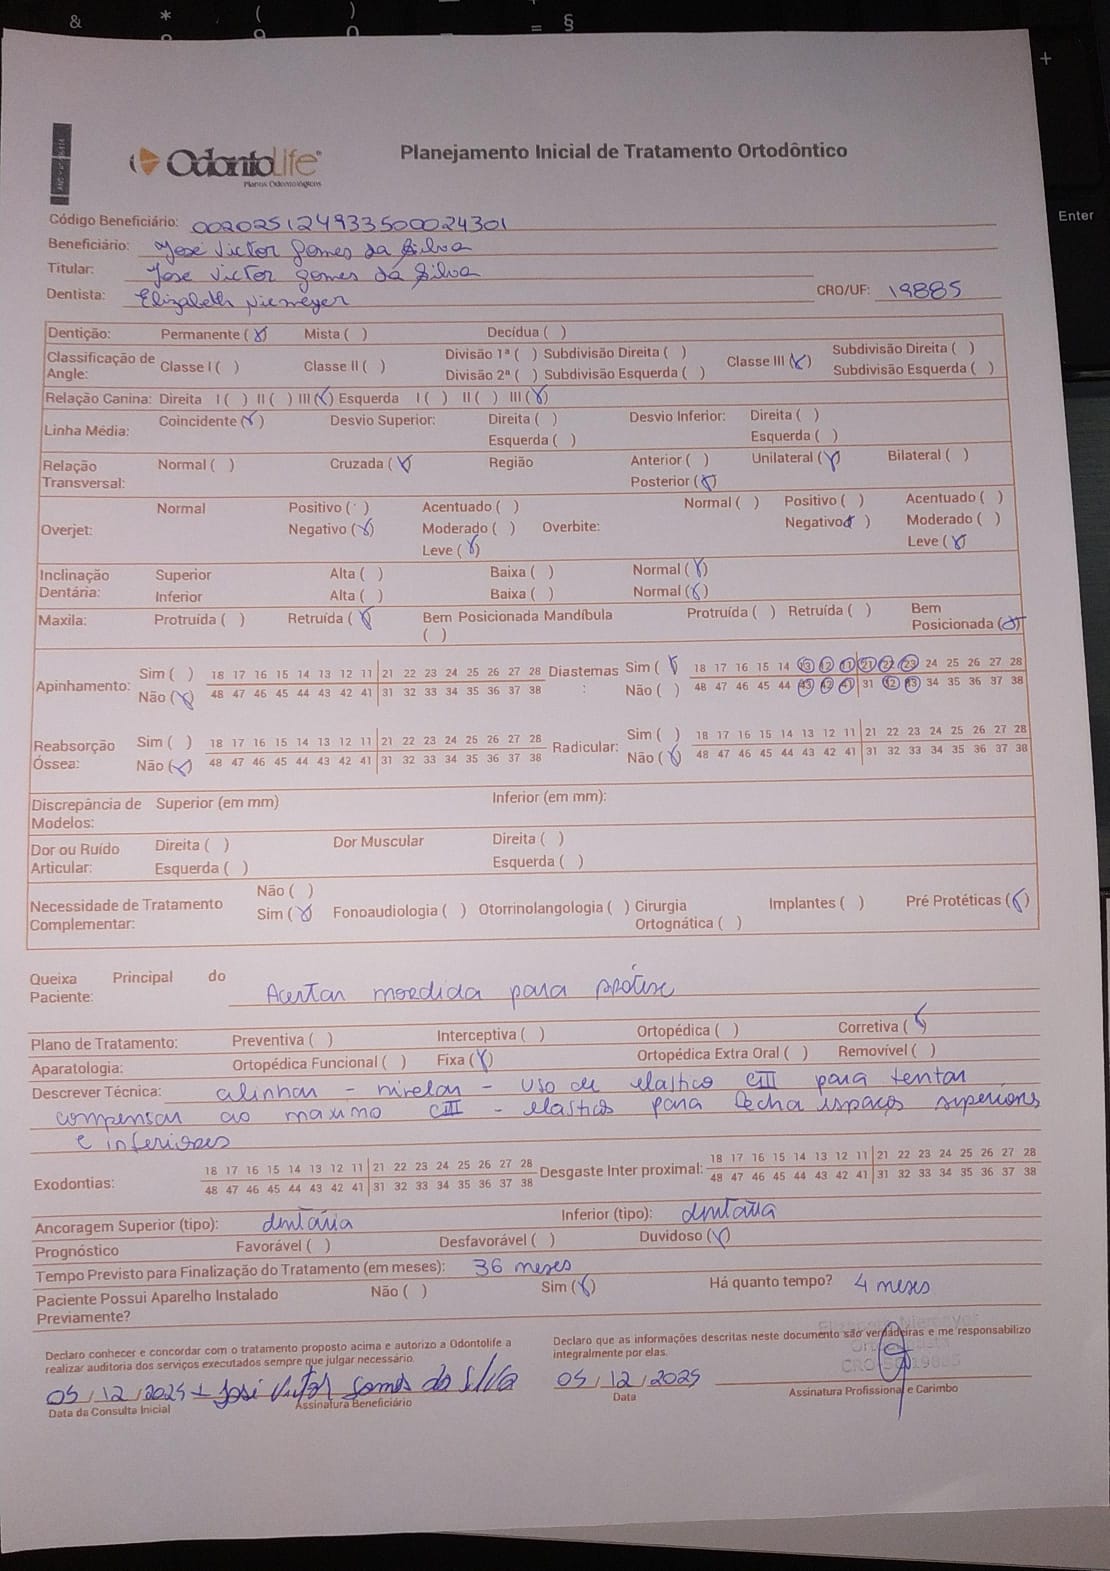 & * ( ) = §
9 0
+
Enter
OdontoLife
Planos Odontológicos
Planejamento Inicial de Tratamento Ortodôntico
Código Beneficiário: 002025124933500024301
Beneficiário: José Victor Gomes da Silva
Titular: Jose Victor gomes da Silva
Dentista: Elizabeth Niemeyer CRO/UF: 19885
Dentição: Permanente (X) Mista ( ) Decídua ( )
Classificação de Angle: Classe I ( ) Classe II ( ) Divisão 1ª ( ) Subdivisão Direita ( ) Classe III (X) Subdivisão Direita ( )
Divisão 2ª ( ) Subdivisão Esquerda ( ) Subdivisão Esquerda ( )
Relação Canina: Direita I ( ) II ( ) III (X) Esquerda I ( ) II ( ) III (X)
Linha Média: Coincidente (X) Desvio Superior: Direita ( ) Desvio Inferior: Direita ( )
Esquerda ( ) Esquerda ( )
Relação Transversal: Normal ( ) Cruzada (X) Região Anterior ( ) Unilateral (X) Bilateral ( )
Posterior (X)
Overjet: Normal Positivo ( ) Acentuado ( ) Overbite: Normal ( ) Positivo ( ) Acentuado ( )
Negativo (X) Moderado ( ) Negativo (X) Moderado ( )
Leve (X) Leve (X)
Inclinação Dentária: Superior Alta ( ) Baixa ( ) Normal (X)
Inferior Alta ( ) Baixa ( ) Normal (X)
Maxila: Protruída ( ) Retruída (X) Bem Posicionada ( ) Mandíbula Protruída ( ) Retruída ( ) Bem Posicionada (X)
Apinhamento: Sim ( ) 18 17 16 15 14 13 12 11 21 22 23 24 25 26 27 28 Diastemas : Sim (X) 18 17 16 15 14 13 12 11 21 22 23 24 25 26 27 28
Não (X) 48 47 46 45 44 43 42 41 31 32 33 34 35 36 37 38 Não ( ) 48 47 46 45 44 43 42 41 31 32 33 34 35 36 37 38
Reabsorção Óssea: Sim ( ) 18 17 16 15 14 13 12 11 21 22 23 24 25 26 27 28 Radicular: Sim ( ) 18 17 16 15 14 13 12 11 21 22 23 24 25 26 27 28
Não (X) 48 47 46 45 44 43 42 41 31 32 33 34 35 36 37 38 Não (X) 48 47 46 45 44 43 42 41 31 32 33 34 35 36 37 38
Discrepância de Modelos: Superior (em mm) Inferior (em mm):
Dor ou Ruído Articular: Direita ( ) Dor Muscular Direita ( )
Esquerda ( ) Esquerda ( )
Necessidade de Tratamento Complementar: Não ( )
Sim (X) Fonoaudiologia ( ) Otorrinolangologia ( ) Cirurgia Ortognática ( ) Implantes ( ) Pré Protéticas (X)
Queixa Principal do Paciente: Acertar mordida para prótese
Plano de Tratamento: Preventiva ( ) Interceptiva ( ) Ortopédica ( ) Corretiva (X)
Aparatologia: Ortopédica Funcional ( ) Fixa (X) Ortopédica Extra Oral ( ) Removível ( )
Descrever Técnica: alinhar - nivelar - uso de elastico CIII para tentar
compensar ao maximo CIII - elasticos para fecha espaços superiores
e inferiores
Exodontias: 18 17 16 15 14 13 12 11 21 22 23 24 25 26 27 28 Desgaste Inter proximal: 18 17 16 15 14 13 12 11 21 22 23 24 25 26 27 28
48 47 46 45 44 43 42 41 31 32 33 34 35 36 37 38 48 47 46 45 44 43 42 41 31 32 33 34 35 36 37 38
Ancoragem Superior (tipo): dentária Inferior (tipo): dentaria
Prognóstico Favorável ( ) Desfavorável ( ) Duvidoso (X)
Tempo Previsto para Finalização do Tratamento (em meses): 36 meses
Paciente Possui Aparelho Instalado Previamente? Não ( ) Sim (X) Há quanto tempo? 4 meses
Declaro conhecer e concordar com o tratamento proposto acima e autorizo a Odontolife a
realizar auditoria dos serviços executados sempre que julgar necessário.
05/12/2025 José Victor Gomes da Silva
Data da Consulta Inicial Assinatura Beneficiário
Declaro que as informações descritas neste documento são verdadeiras e me responsabilizo
integralmente por elas.
05/12/2025
Data Assinatura Profissional e Carimbo